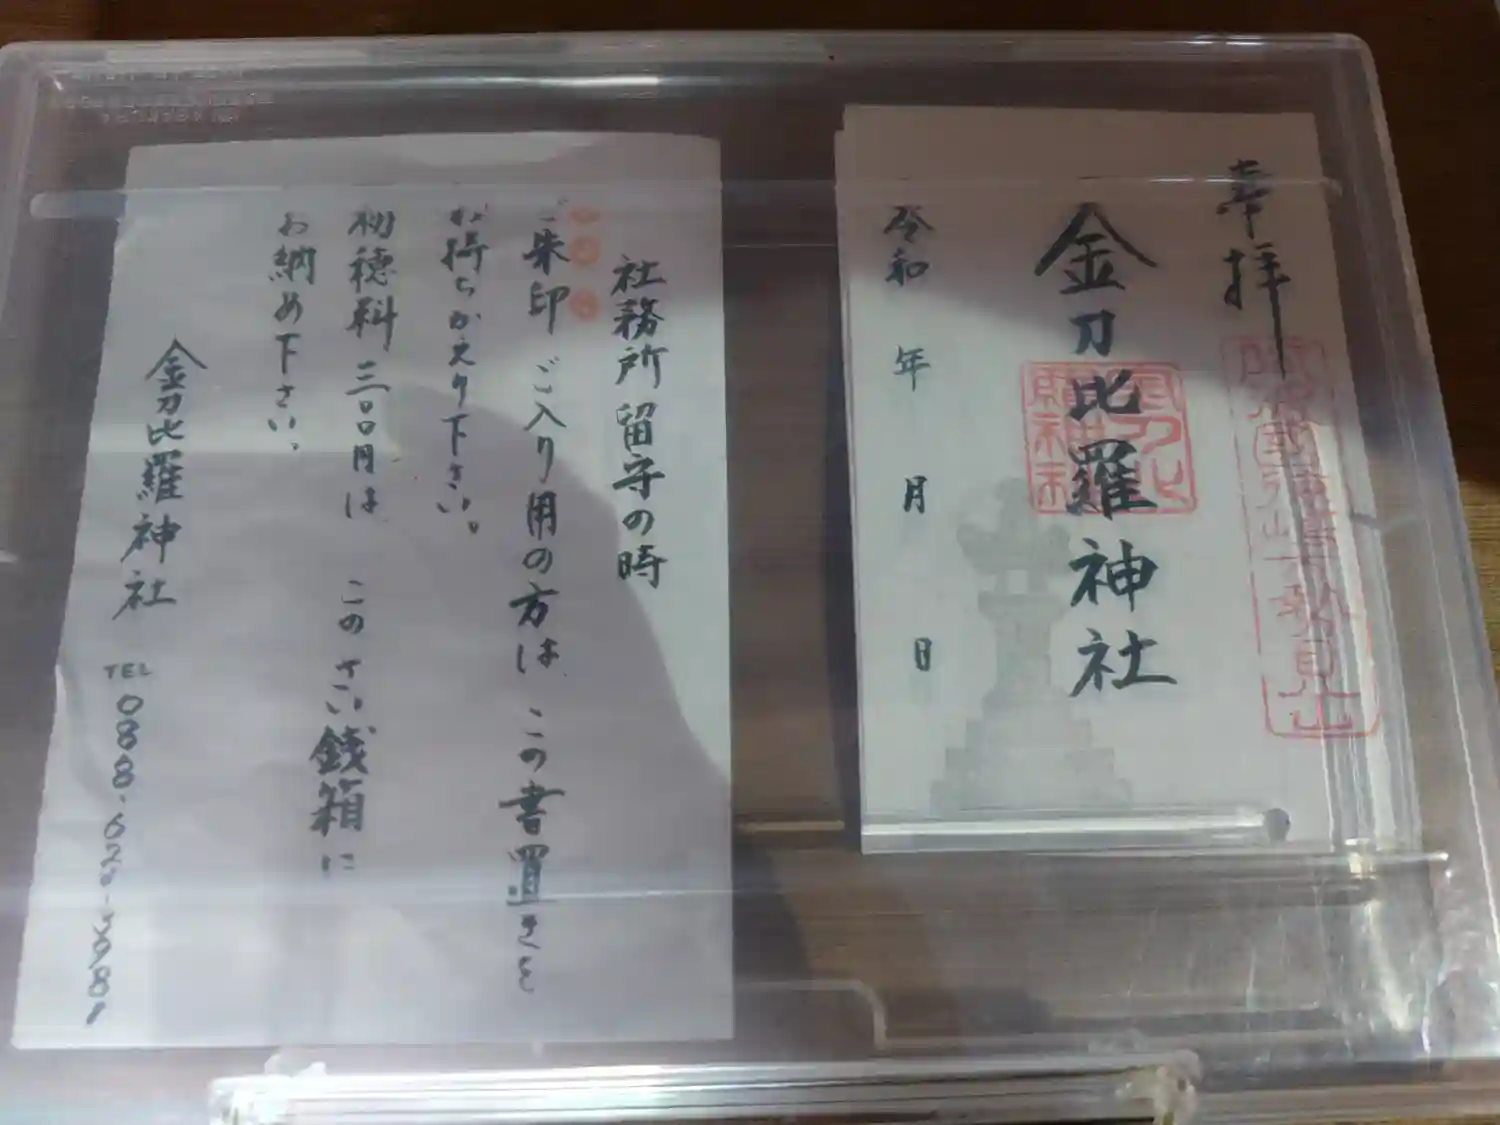 奉拝
金刀比羅神社
令和 年 月 日
社務所留守の時
ご朱印ご入り用の方は この書置きを
お持ちかえり下さい。
初穂料 三〇〇円は このさい銭箱に
お納め下さい。
金刀比羅神社 TEL